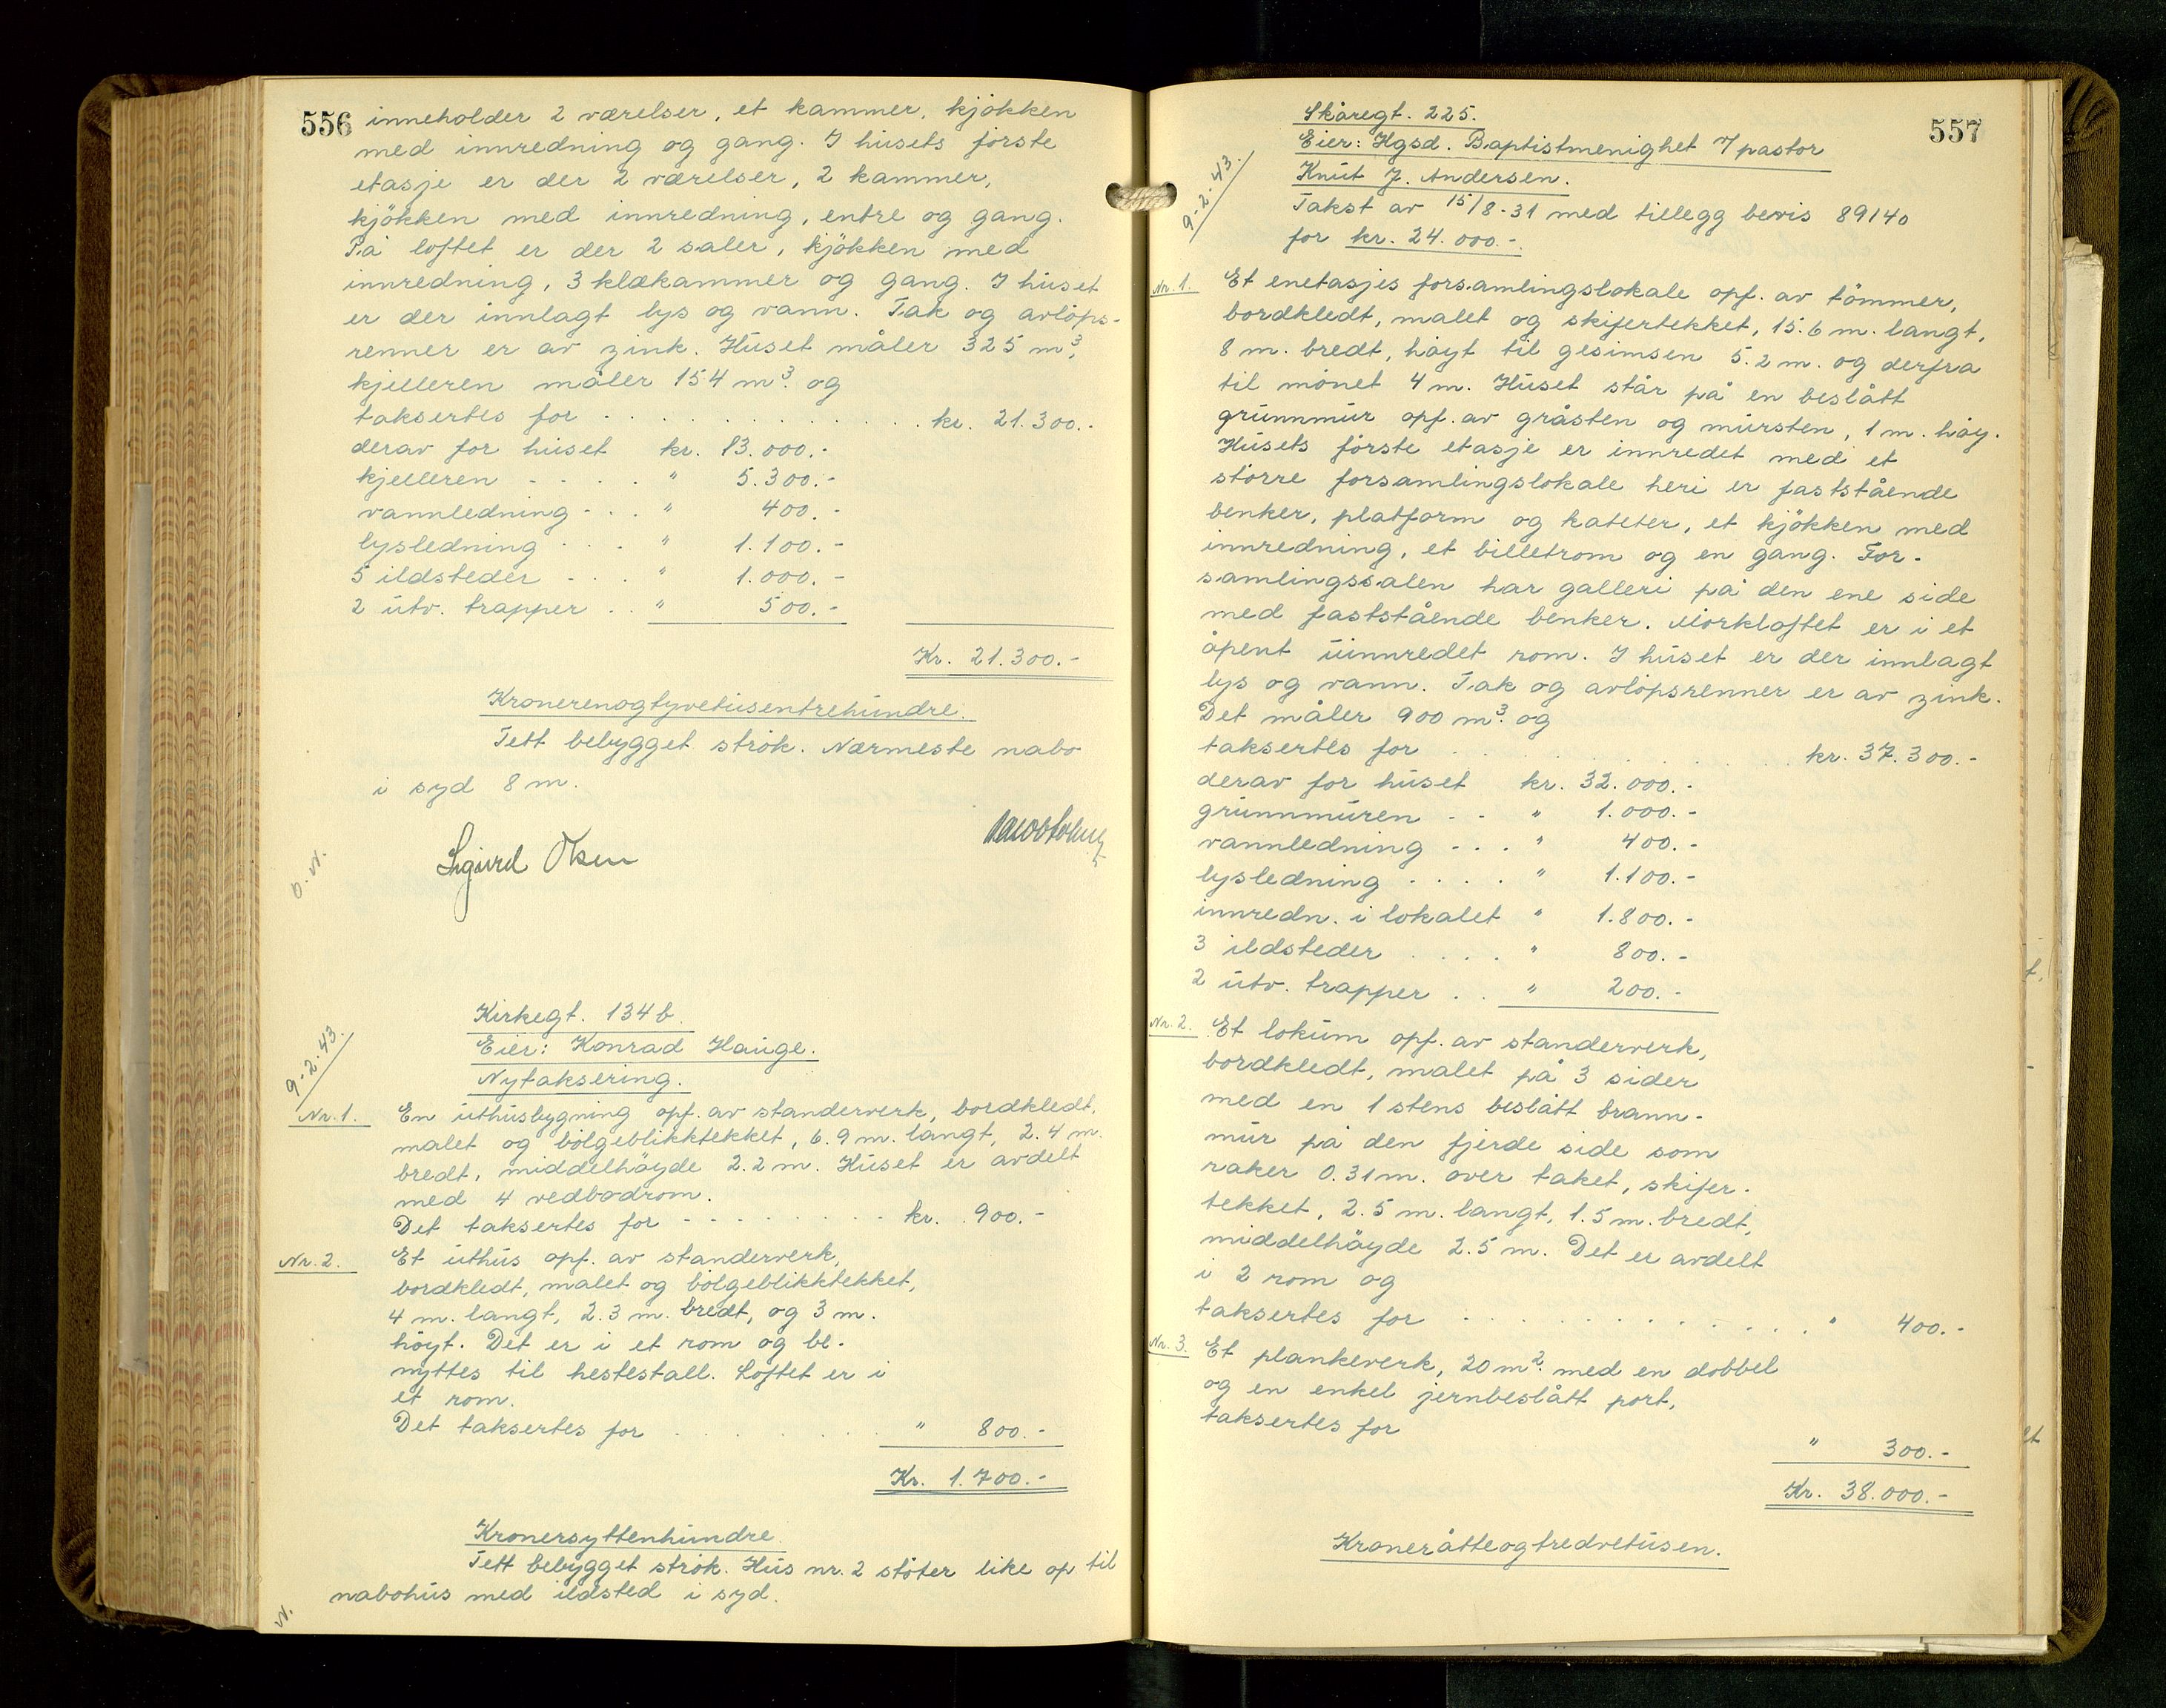 556
inneholder 2 værelser, et kammer, kjökken
med innredning og gang. I husets förste
etasje er der 2 værelser, 2 kammer,
kjökken med innredning, entre og gang.
På loftet er der 2 saler, kjökken med
innredning, 3 klækammer og gang. I huset
er der innlagt lys og vann. Tak og avlöps-
renner er av zink. Huset måler 325 m³,
kjelleren måler 154 m³. og
taksertes for . . . . . . . . . . . kr. 21.300.-
derav for huset kr. 13.000.-
kjelleren - - . . " 5.300.-
vannledning - . . " 400.-
lysledning . . . " 1.100.-
5 ildsteder - . . " 1.000.-
2 utv. trapper . . " 500.-
Kr. 21.300.-
Kronerenogtyvetusentrehundre.
Tett bebygget strök. Nærmeste nabo
i syd 8 m.
Sigurd Olsen
O. N.
9-2-43.
Kirkegt. 134 b.
Eier: Konrad Hauge.
Nytaksering.
Nr. 1. En uthusbygning opf. av standerverk, bordkledt,
malet og bölgeblikktekket, 6.9 m. langt, 2.4 m.
bredt, middelhöyde 2.2 m. Huset er avdelt
med 4 vedbodrom.
Det taksertes for - - - - - - - kr. 900.-
Nr. 2. Et uthus opf. av standerverk,
bordkledt, malet og bölgeblikktekket,
4 m. langt, 2.3 m. bredt, og 3 m.
höyt. Det er i et rom og be-
nyttes til hestestall. Loftet er i
et rom.
Det taksertes for . . . . . . " 800.-
Kr. 1.700.-
Kronersyttenhundre.
Tett bebygget strök. Hus nr. 2 stöter like op til
nabohus med ildsted i syd.
N.
557
9-2-43.
Skåregt. 225.
Eier: Hgsd. Baptistmenighet 7 pastor
Knut J. Andersen.
Takst av 15/8-31 med tillegg bevis 89140
for kr. 24.000.-
Nr. 1. Et enetasjes forsamlingslokale opf. av tömmer,
bordkledt, malet og skifertekket, 15.6 m. langt,
8 m. bredt, höyt til gesimsen 5.2 m. og derfra
til mönet 4 m. Huset står på en beslått
grunnmur opf. av gråsten og mursten, 1 m. höy.
Husets förste etasje er innredet med et
större forsamlingslokale heri er faststående
benker, platform og kateter, et kjökken med
innredning, et billetrom og en gang. For-
samlingssalen har galleri på den ene side
med faststående benker. Mörkloftet er i et
åpent uinnredet rom. I huset er der innlagt
lys og vann. Tak og avlöpsrenner er av zink.
Det måler 900 m³. og
taksertes for . . . . . . . . . kr. 37.300.-
derav for huset kr. 32.000.-
grunnmuren - - " 1.000.-
vannledning - . . " 400.-
lysledning . . . . " 1.100.-
innredn. i lokalet " 1.800.-
3 ildsteder . . . . " 800.-
2 utv. trapper . . " 200.-
Nr. 2. Et lokum opf. av standerverk,
bordkledt, malet på 3 sider
med en 1 stens beslått brann-
mur på den fjerde side som
raker 0.31 m. over taket, skifer-
tekket, 2.5 m. langt, 1.5 m. bredt,
middelhöyde 2.5 m. Det er avdelt
i 2 rom og
taksertes for . . . . . . . . . . " 400.-
Nr. 3. Et plankeverk, 20 m². med en dobbel
og en enkel jernbeslått port,
taksertes for
" 300.-
Kr. 38.000.-
Kroneråtteogtredvetusen.